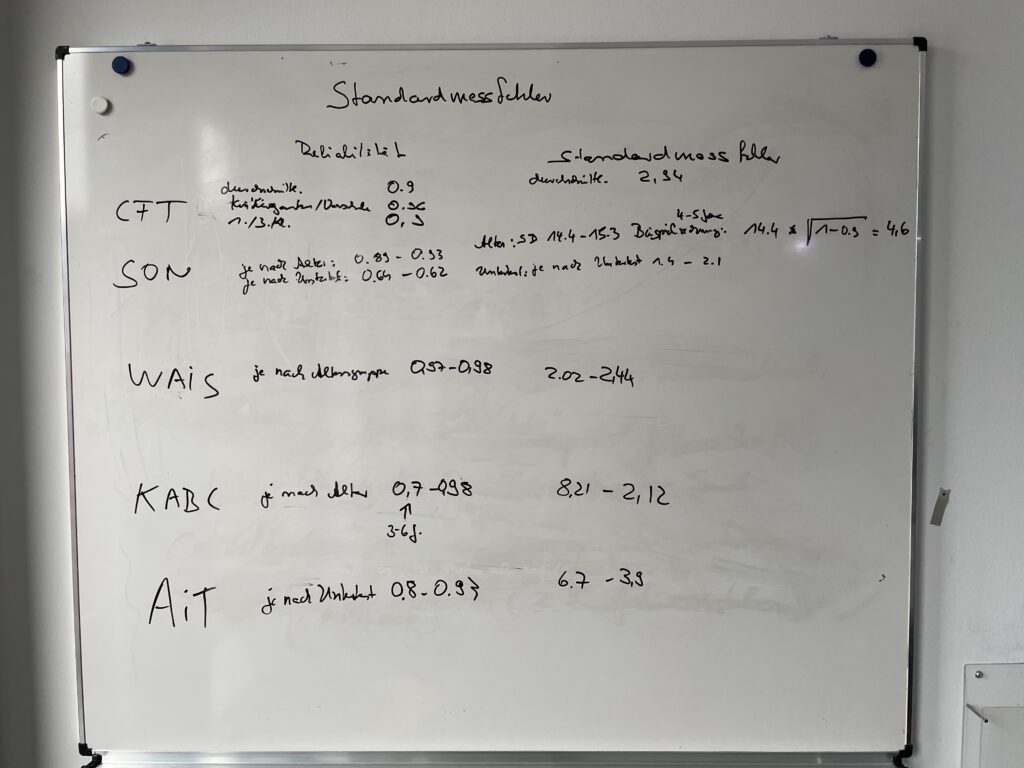 Standardmessfehler
Reliabilität Standardmessfehler
durchschnittl. 0.9 durchschnittl. 2,94
CFT Kindergarten/Vorschule 0.96
1./3. Kl. 0,9
4-5 Jahre
Alter: SD 14.4-15.3 14.4 * √1-0.9 = 4,6
SON je nach Alter: 0.89 - 0.93
je nach Untertest: 0.64 - 0.62 Untertest: je nach Untertest 1.4 - 2.1
WAiS je nach Altersgruppe 0,97-0,98 2.02-2,44
KABC je nach Alter 0,7-0,98 8,21 - 2,12
↑
3-6 J.
AiT je nach Untertest 0.8-0.93 6.7 - 3,9